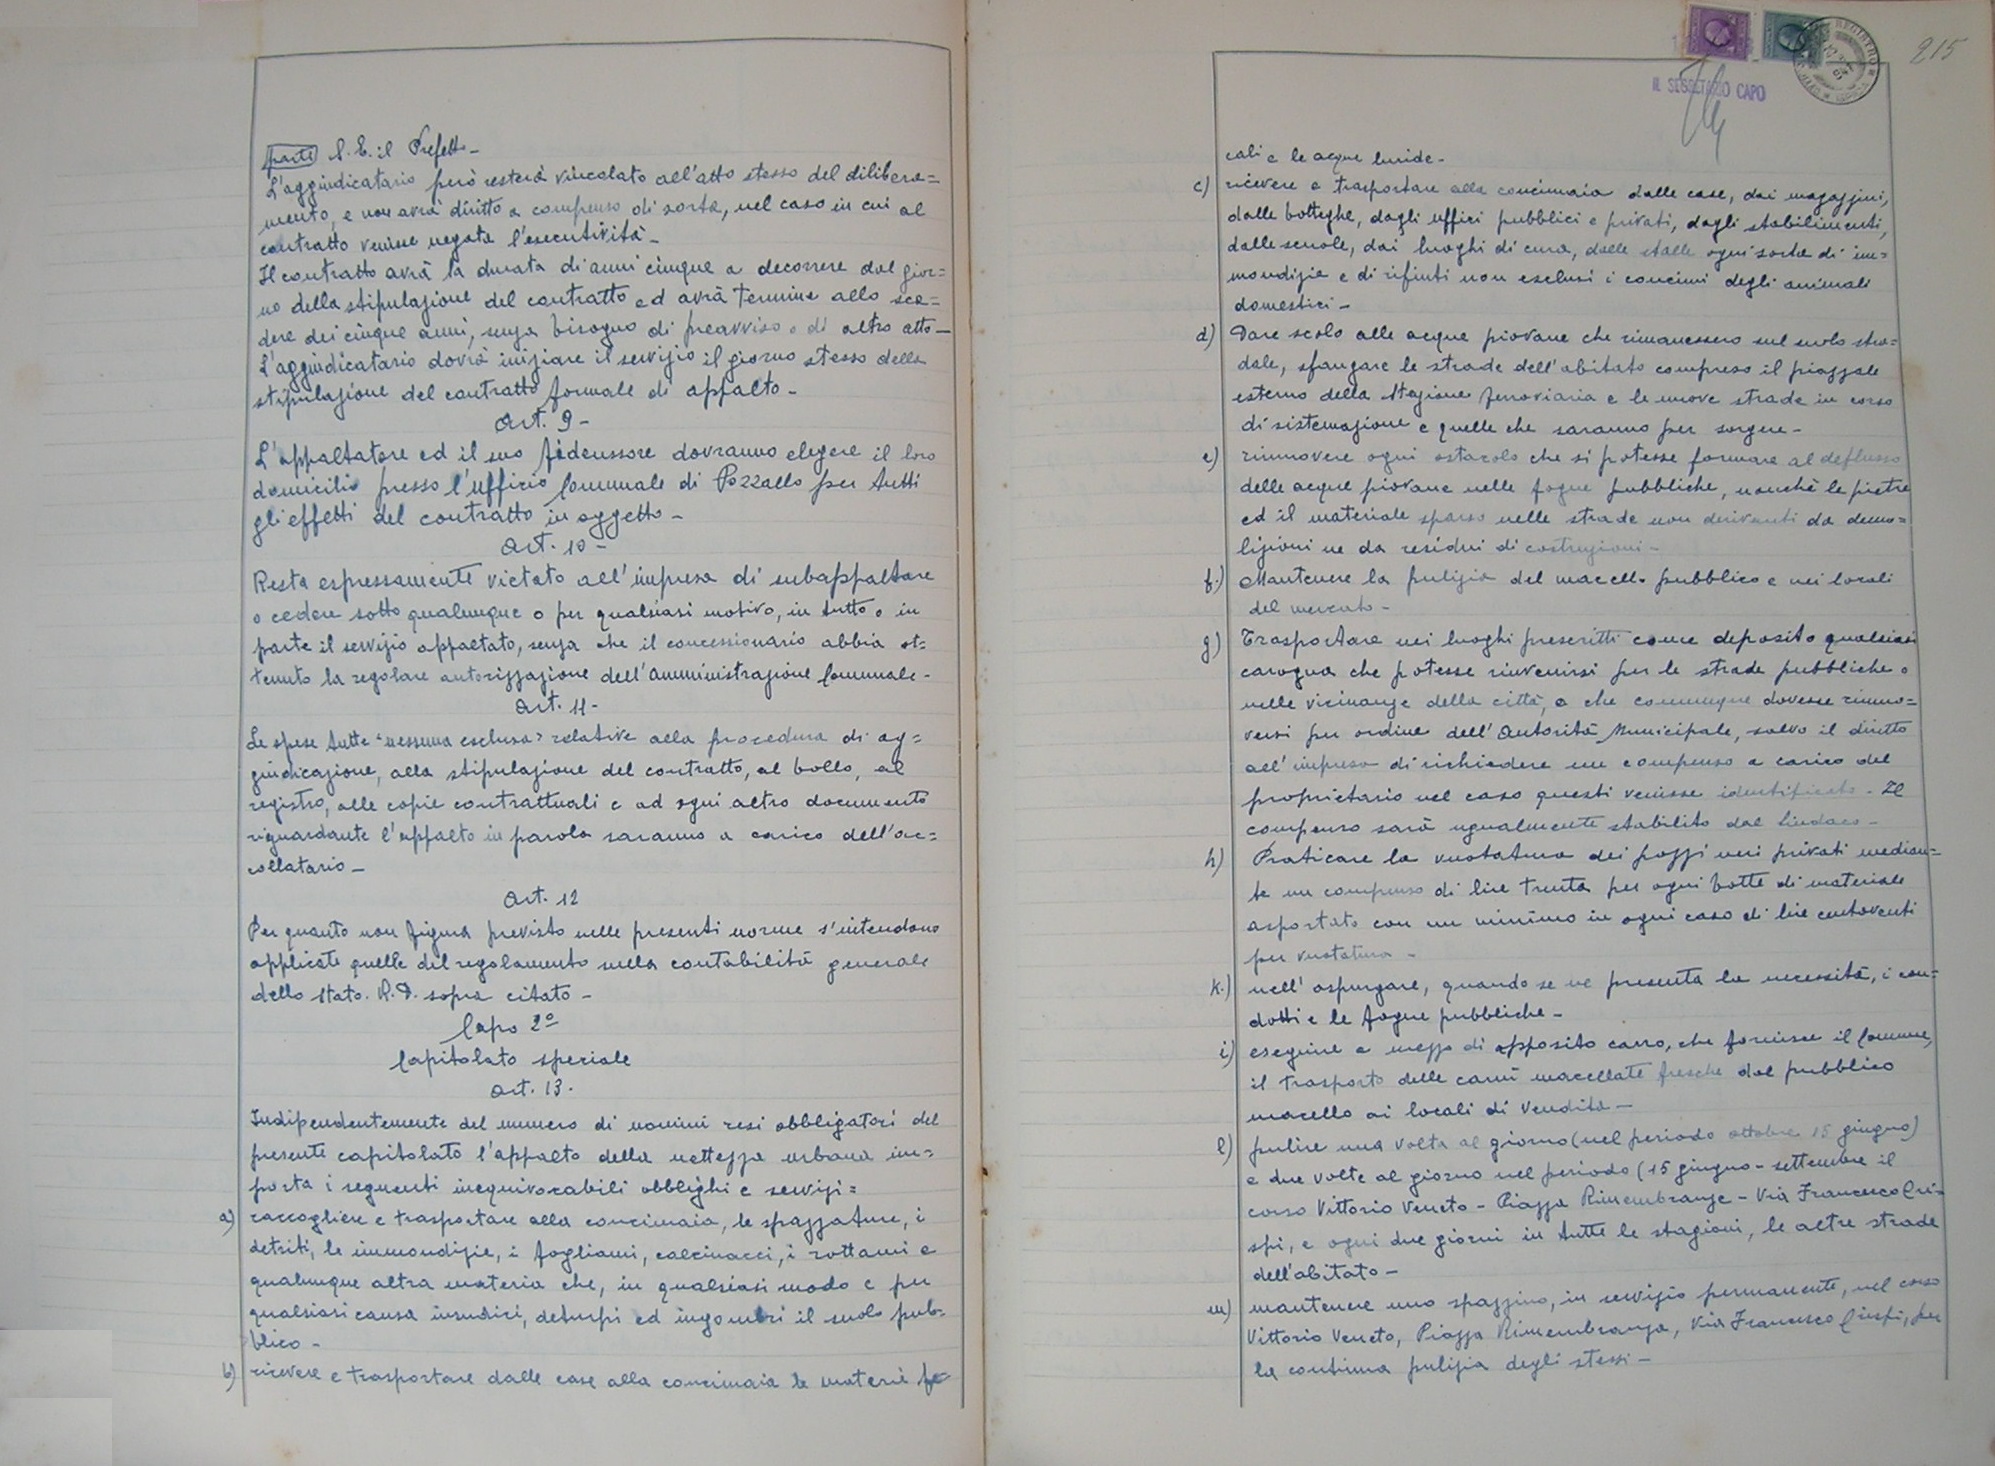 parte S. E. il Prefetto -
L'aggiudicatario però resterà vincolato all'atto stesso del delibera=
mento, e non avrà diritto a compenso di sorta, nel caso in cui al
contratto venisse negata l'esecutività -
Il contratto avrà la durata di anni cinque a decorrere dal gior=
no della stipulazione del contratto ed avrà termine allo sca=
dere dei cinque anni, senza bisogno di preavviso o di altro atto -
L'aggiudicatario dovrà iniziare il servizio il giorno stesso della
stipulazione del contratto formale di appalto -
Art. 9 -
L'appaltatore ed il suo fideiussore dovranno elegere il loro
domicilio presso l'ufficio Comunale di Pozzallo per tutti
gli effetti del contratto in oggetto -
Art. 10 -
Resta espressamente vietato all'impresa di subappaltare
o cedere sotto qualunque o per qualsiasi motivo, in tutto o in
parte il servizio appaltato, senza che il concessionario abbia ot=
tenuto la regolare autorizzazione dell'Amministrazione Comunale -
Art. 11 -
Le spese tutte "nessuna esclusa" relative alla procedura di ag=
giudicazione, alla stipulazione del contratto, al bollo, al
registro, alle copie contrattuali e ad ogni altro documento
riguardante l'appalto in parola saranno a carico dell'ac=
collatario -
Art. 12
Per quanto non figura previsto nelle presenti norme s'intendono
applicate quelle del regolamento sulla contabilità generale
dello Stato. R. D. sopra citato -
Capo 2º
Capitolato speciale
Art. 13.
Indipendentemente del numero di uomini resi obbligatori del
presente capitolato l'appalto della nettezza urbana im=
porta i seguenti inequivocabili obblighi e servizi =
a) raccogliere e trasportare alla concimaia, le spazzature, i
detriti, le immondizie, i fogliami, calcinacci, i rottami e
qualunque altra materia che, in qualsiasi modo e per
qualsiasi causa insudici, deturpi ed ingombri il suolo pub-
blico -
b) ricevere e trasportare dalle case alla concimaia le materie fe-
215
IL SEGRETARIO CAPO
cali e le acque luride -
c) ricevere e trasportare alla concimaia dalle case, dai magazzini,
dalle botteghe, dagli uffici pubblici e privati, dagli stabilimenti,
dalle scuole, dai luoghi di cura, dalle stalle ogni sorta di im=
mondizia e di rifiuti non esclusi i concimi degli animali
domestici -
d) Dare scolo alle acque piovane che rimanessero sul suolo stra=
dale, sfangare le strade dell'abitato compreso il piazzale
esterno della Stazione ferroviaria e le nuove strade in corso
di sistemazione e quelle che saranno per sorgere -
e) rimuovere ogni ostacolo che si potesse formare al deflusso
delle acque piovane nelle fogne pubbliche, nonchè le pietre
ed il materiale sparso nelle strade non derivanti da demo=
lizioni ne da residui di costruzioni -
f.) Mantenere la pulizia del macello pubblico e nei locali
del mercato -
g) Trasportare nei luoghi prescritti come deposito qualsiasi
carogna che potesse rinvenirsi per le strade pubbliche o
nelle vicinanze della città, o che comunque dovesse rimuo=
versi per ordine dell'Autorità Municipale, salvo il diritto
all'impresa di richiedere un compenso a carico del
proprietario nel caso questi venisse identificato - Il
compenso sarà ugualmente stabilito dal Sindaco -
h) Praticare la vuotatura dei pozzi neri privati median=
te un compenso di lire trenta per ogni botte di materiale
asportato con un minimo in ogni caso di lire centoventi
per vuotatura -
k.) nell'espurgare, quando se ne presenta la necessità, i con=
dotti e le fogne pubbliche -
i) eseguire a mezzo di apposito carro, che fornisce il Comune,
il trasporto delle carni macellate fresche dal pubblico
macello ai locali di vendita -
l) pulire una volta al giorno (nel periodo ottobre 15 giugno)
e due volte al giorno nel periodo (15 giugno - settembre il
corso Vittorio Veneto - Piazza Rimembranze - Via Francesco Cri=
spi, e ogni due giorni in tutte le stagioni, le altre strade
dell'abitato -
m) mantenere uno spazzino, in servizio permanente, nel corso
Vittorio Veneto, Piazza Rimembranza, Via Francesco Crispi, per
la continua pulizia degli stessi -